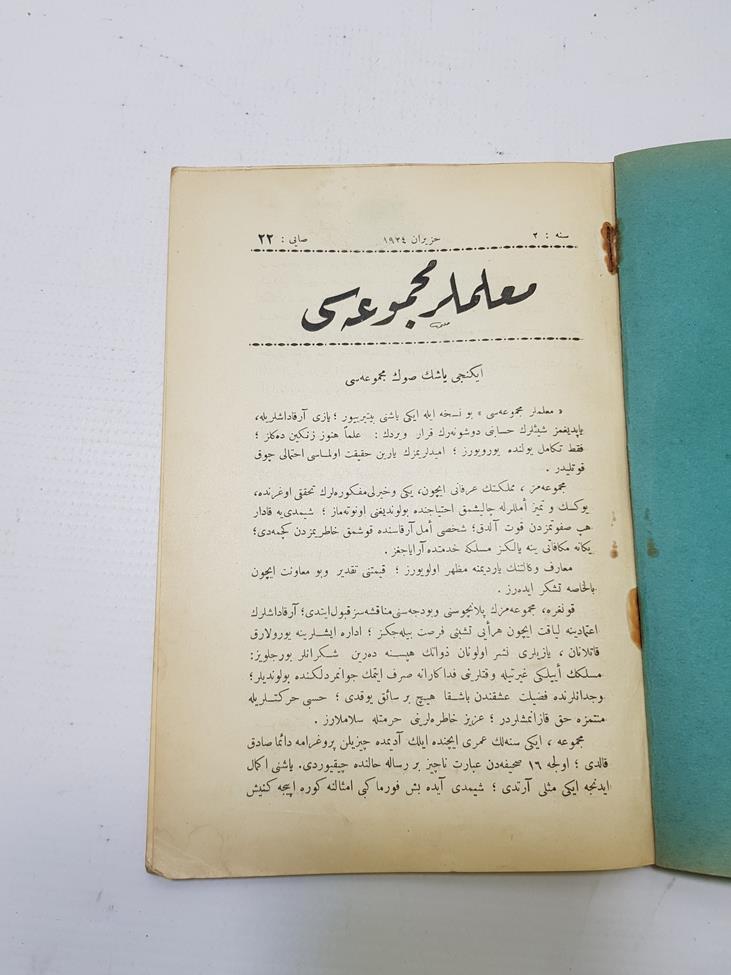 سنه : ٢ حزيران ١٩٢٤ صايى : ٢٢
معلملر مجموعه‌سى
ايكنجى ياشك صوك مجموعه‌سى
« معلملر مجموعه‌سى » بو نسخه ايله ايكى ياشنى بيتيرييور ؛ يازى آرقاداشلريله،
ياپديغمز شيئلرك حسابنى دوشونه‌رك قرار ويردك : علماً هنوز زنكين ده‌كلز ؛
فقط تكامل يولنده يورويورز ؛ اميدلريمزك يارين حقيقت اولماسى احتمالى چوق
قوتليدر .
مجموعه‌مز ، مملكتك عرفانى ايچون، يكى وخيرلى مفكوره‌لرك تحققى اوغرنده،
يوكسك و تميز أمللرله چاليشمق احتياجنده بولونديغنى اونوته‌ماز ؛ شيمدى‌يه قادار
هپ صفوتمزدن قوت آلدق؛ شخصى أمل آرقاسنده قوشمق خاطريمزدن كچمه‌دى؛
يكانه مكافاتى ينه يالكز مسلكه خدمتده آراياجغز .
معارف وكالتنك يارديمنه مظهر اولويورز ؛ قيمتنى تقدير وبو معاونت ايچون
بالخاصه تشكر ايده‌رز .
قونغره، مجموعه‌مزك پلانچوسنى وبودجه‌سنى مناقشه‌سز قبول ايتدى؛ آرقاداشلرك
اعتمادينه لياقت ايچون هرأيى تشبثى فرصت بيله‌جكز ؛ اداره ايشلرينه يورولارق
قاتلانان ، يازيلرى نشر اولونان ذواتك هپسنه ده‌رين شكرانلر بورجلويز:
مسلكك أييلكى غيرتيله وقتلرينى فداكارانه صرف ايتمك جوانمردلكنده بولونديلر؛
وجدانلرنده فضيلت عشقندن باشقا هيچ بر سائق يوقدى ؛ حسبى حركتلريله
منتمزه حق قازانمشلردر ؛ عزيز خاطره‌لرينى حرمتله سلاملارز .
مجموعه ، ايكى سنه‌لك عمرى ايچنده ايلك آديمده چيزيلن پروغرامه دائما صادق
قالدى ؛ اولجه ١٦ صحيفه‌دن عبارت ناچيز بر رساله حالنده چيقيوردى. ياشنى اكمال
ايدنجه ايكى مثلى آرتدى ؛ شيمدى آيده بش فورما كبى امثالنه كوره اپيجه كنيش